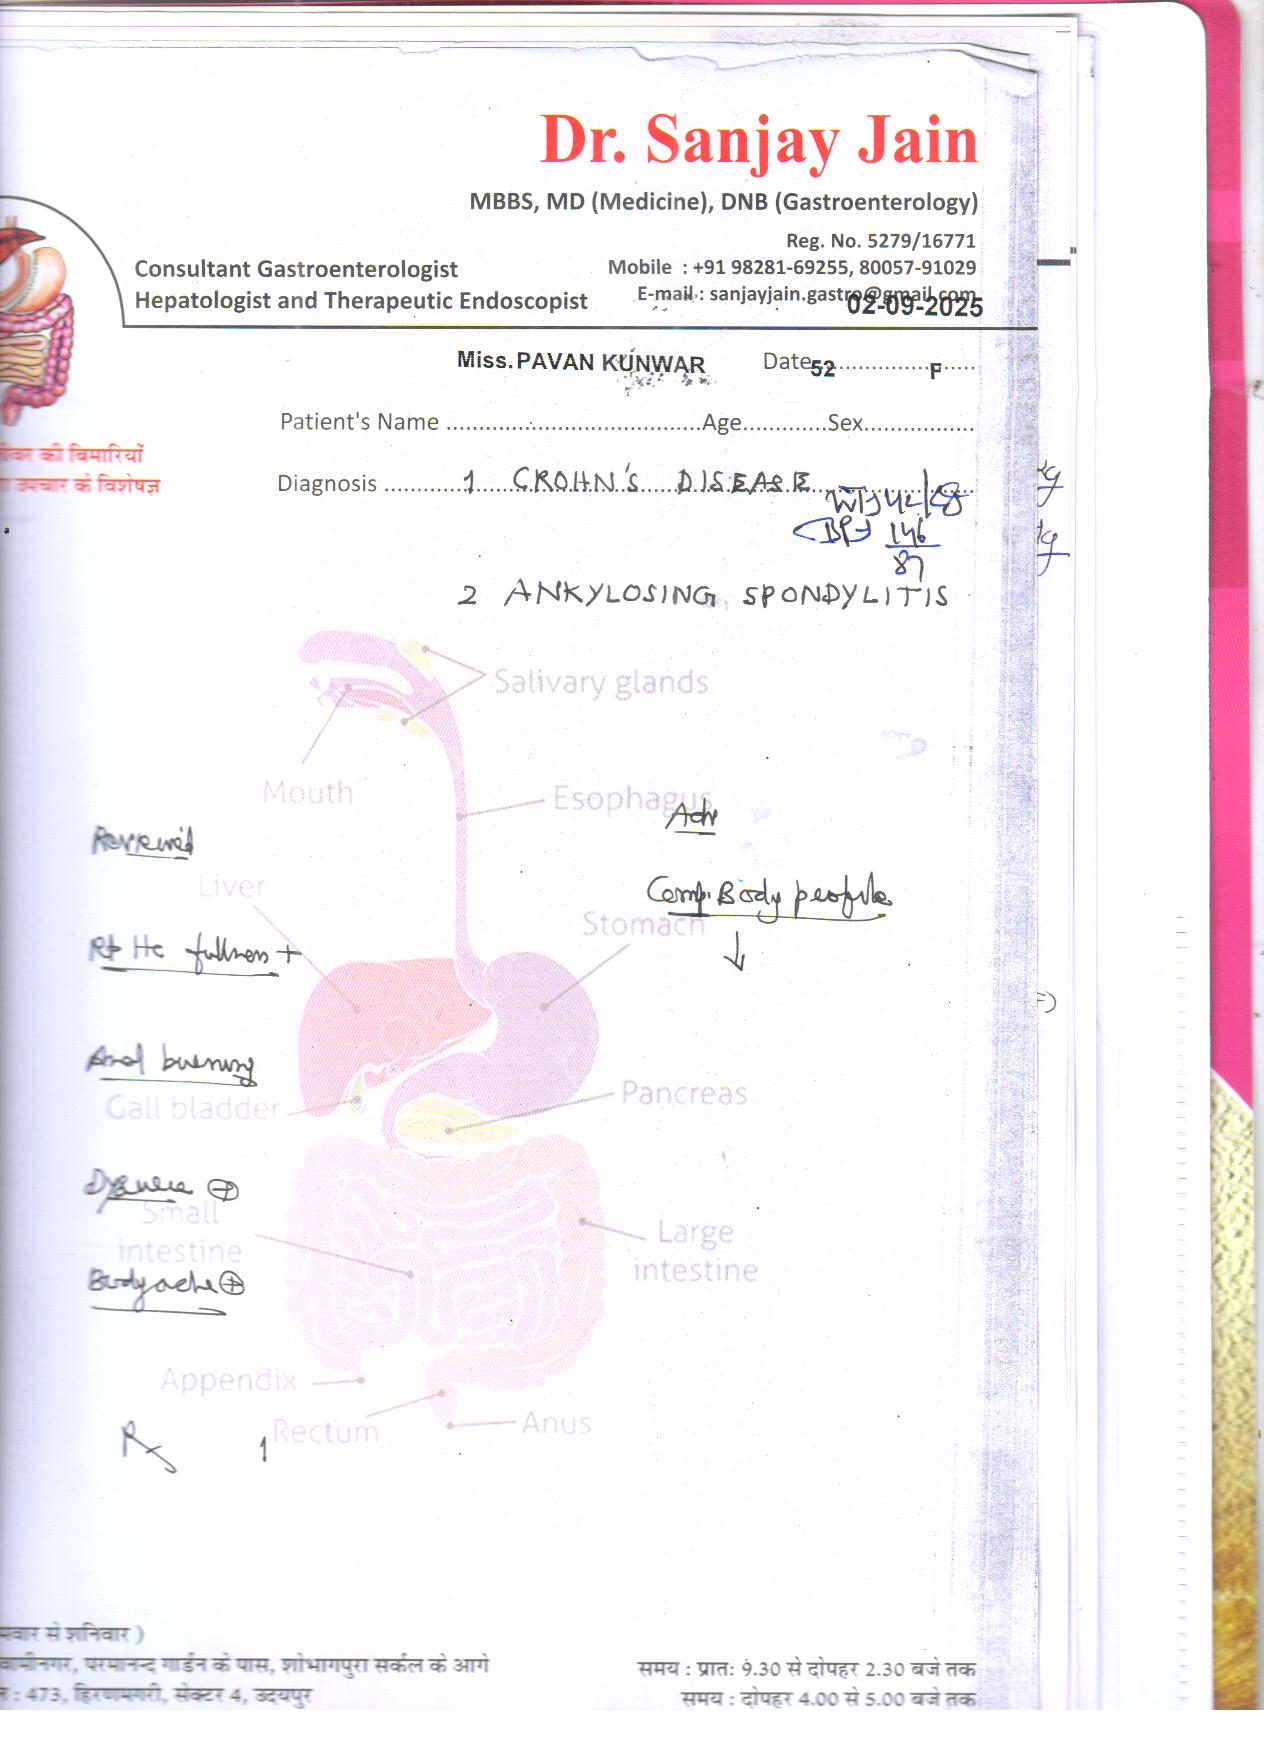 Dr. Sanjay Jain
MBBS, MD (Medicine), DNB (Gastroenterology)
Reg. No. 5279/16771
Consultant Gastroenterologist
Mobile : +91 98281-69255, 80057-91029
Hepatologist and Therapeutic Endoscopist
E-mail : sanjayjain.gastro@gmail.com
02-09-2025
Miss. PAVAN KUNWAR Date 52 F
Patient's Name Age Sex
की बिमारियाँ
उपचार के विशेषज्ञ
Diagnosis 1 CROHN'S DISEASE
BP 146
87
2 ANKYLOSING SPONDYLITIS
Salivary glands
Mouth
Esophagus
Adv
Reviewed
Liver
Comp. Body profile
Stomach
Rt Hc fullness +
Anal burning
Pancreas
Gall bladder
Small
intestine
Large
intestine
Bodyache +
Appendix
Rx 1
Rectum
Anus
से शनिवार )
परमानन्द गार्डन के पास, शोभागपुरा सर्कल के आगे
समय : प्रातः 9.30 से दोपहर 2.30 बजे तक
: 473, हिरणमगरी, सेक्टर 4, उदयपुर
समय : दोपहर 4.00 से 5.00 बजे तक